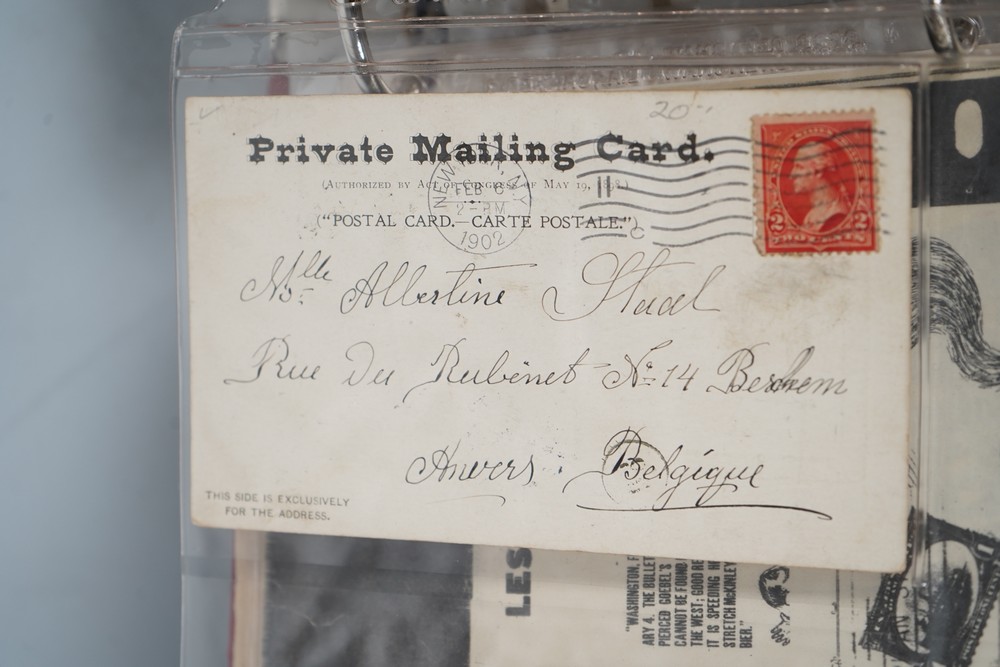 20
Private Mailing Card.
(Authorized by Act of Congress of May 19, 1898.)
("POSTAL CARD.—CARTE POSTALE.")
NEW YORK, N.Y.
FEB 6
2-PM
1902
2 2
TWO CENTS
Mlle Albertine Stadel
Rue Du Rubénet No 14 Berchem
Anvers. Belgique
THIS SIDE IS EXCLUSIVELY
FOR THE ADDRESS.
LES
"WASHINGTON, F
ARY 4. THE BULLET
PIERCED GOEBEL'S
CANNOT BE FOUND
THE WEST; GOOD RE
IT IS SPEEDING H
STRETCH McKINLEY
BIER."